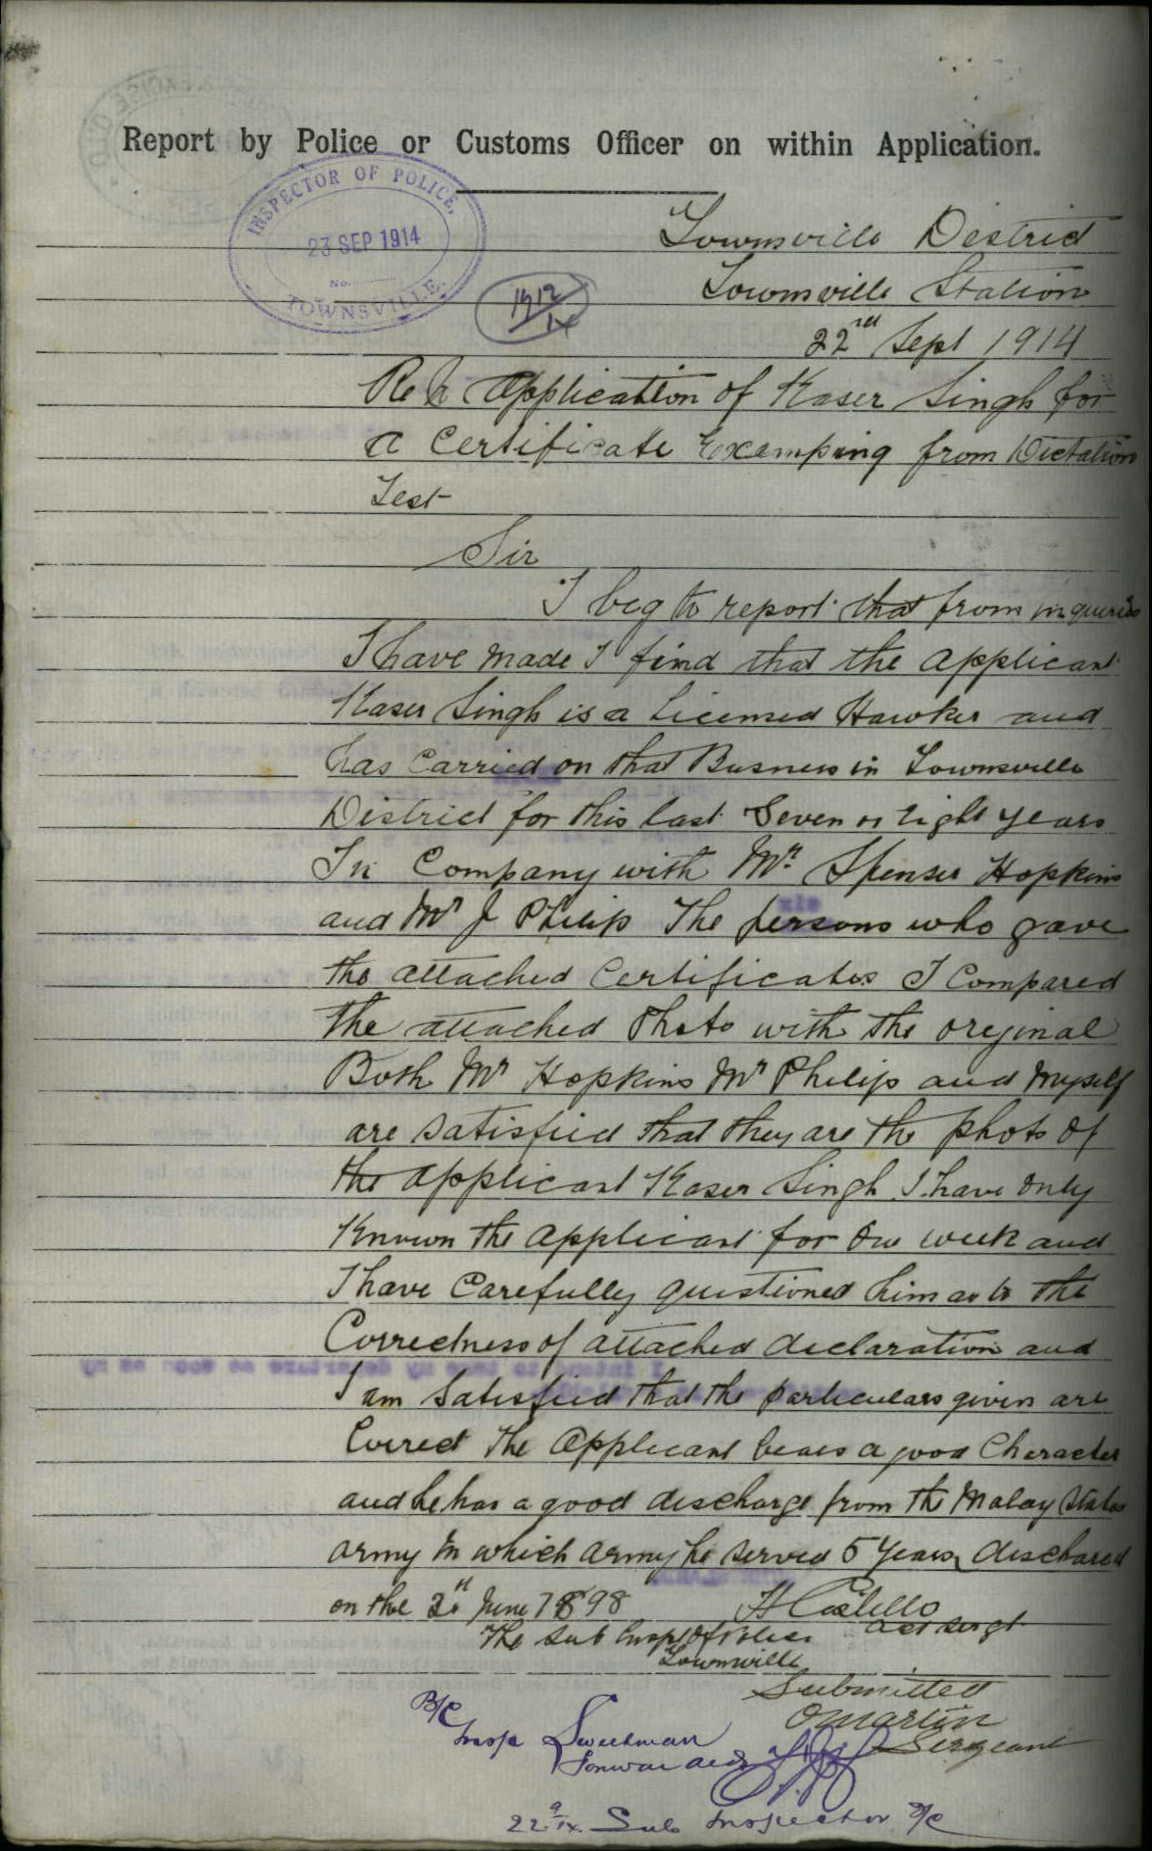 Report by Police or Customs Officer on within Application.
INSPECTOR OF POLICE,
23 SEP 1914
No.
TOWNSVILLE
Townsville District
Townsville Station
22nd Sept 1914
Application of Kaser Singh for
a Certificate Examping from Dictation
Test
Sir
I beg to report that from inqueries
I have made I find that the applicant
Kaser Singh is a Licensed Hawker and
has Carried on that Busness in Townsville
District for this last Seven or Eight years
In Company with Mr. Spenser Hopkins
and Mr J Philip The persons who gave
the attached Certificates I Compared
the attached Photo with the orejinal
Both Mr Hopkins Mr Philip and Myself
are satisfied that they are the photo of
the applicant Kaser Singh I have only
Known the applicant for One week and
I have Carefully questioned him as to the
Correctness of attached declaration and
I am Satisfied that the particulars given are
Correct The Applicant bears a good Character
and he has a good discharge from the Malay States
army in which army he served 5 years discharged
on the June 1898
Act Sergt
The Sub Inspr Of Police
Townsville
Submitted
O Martin
Sergeant
Inspr Sweetman
Forwarded
22/9/14 Sub Inspector